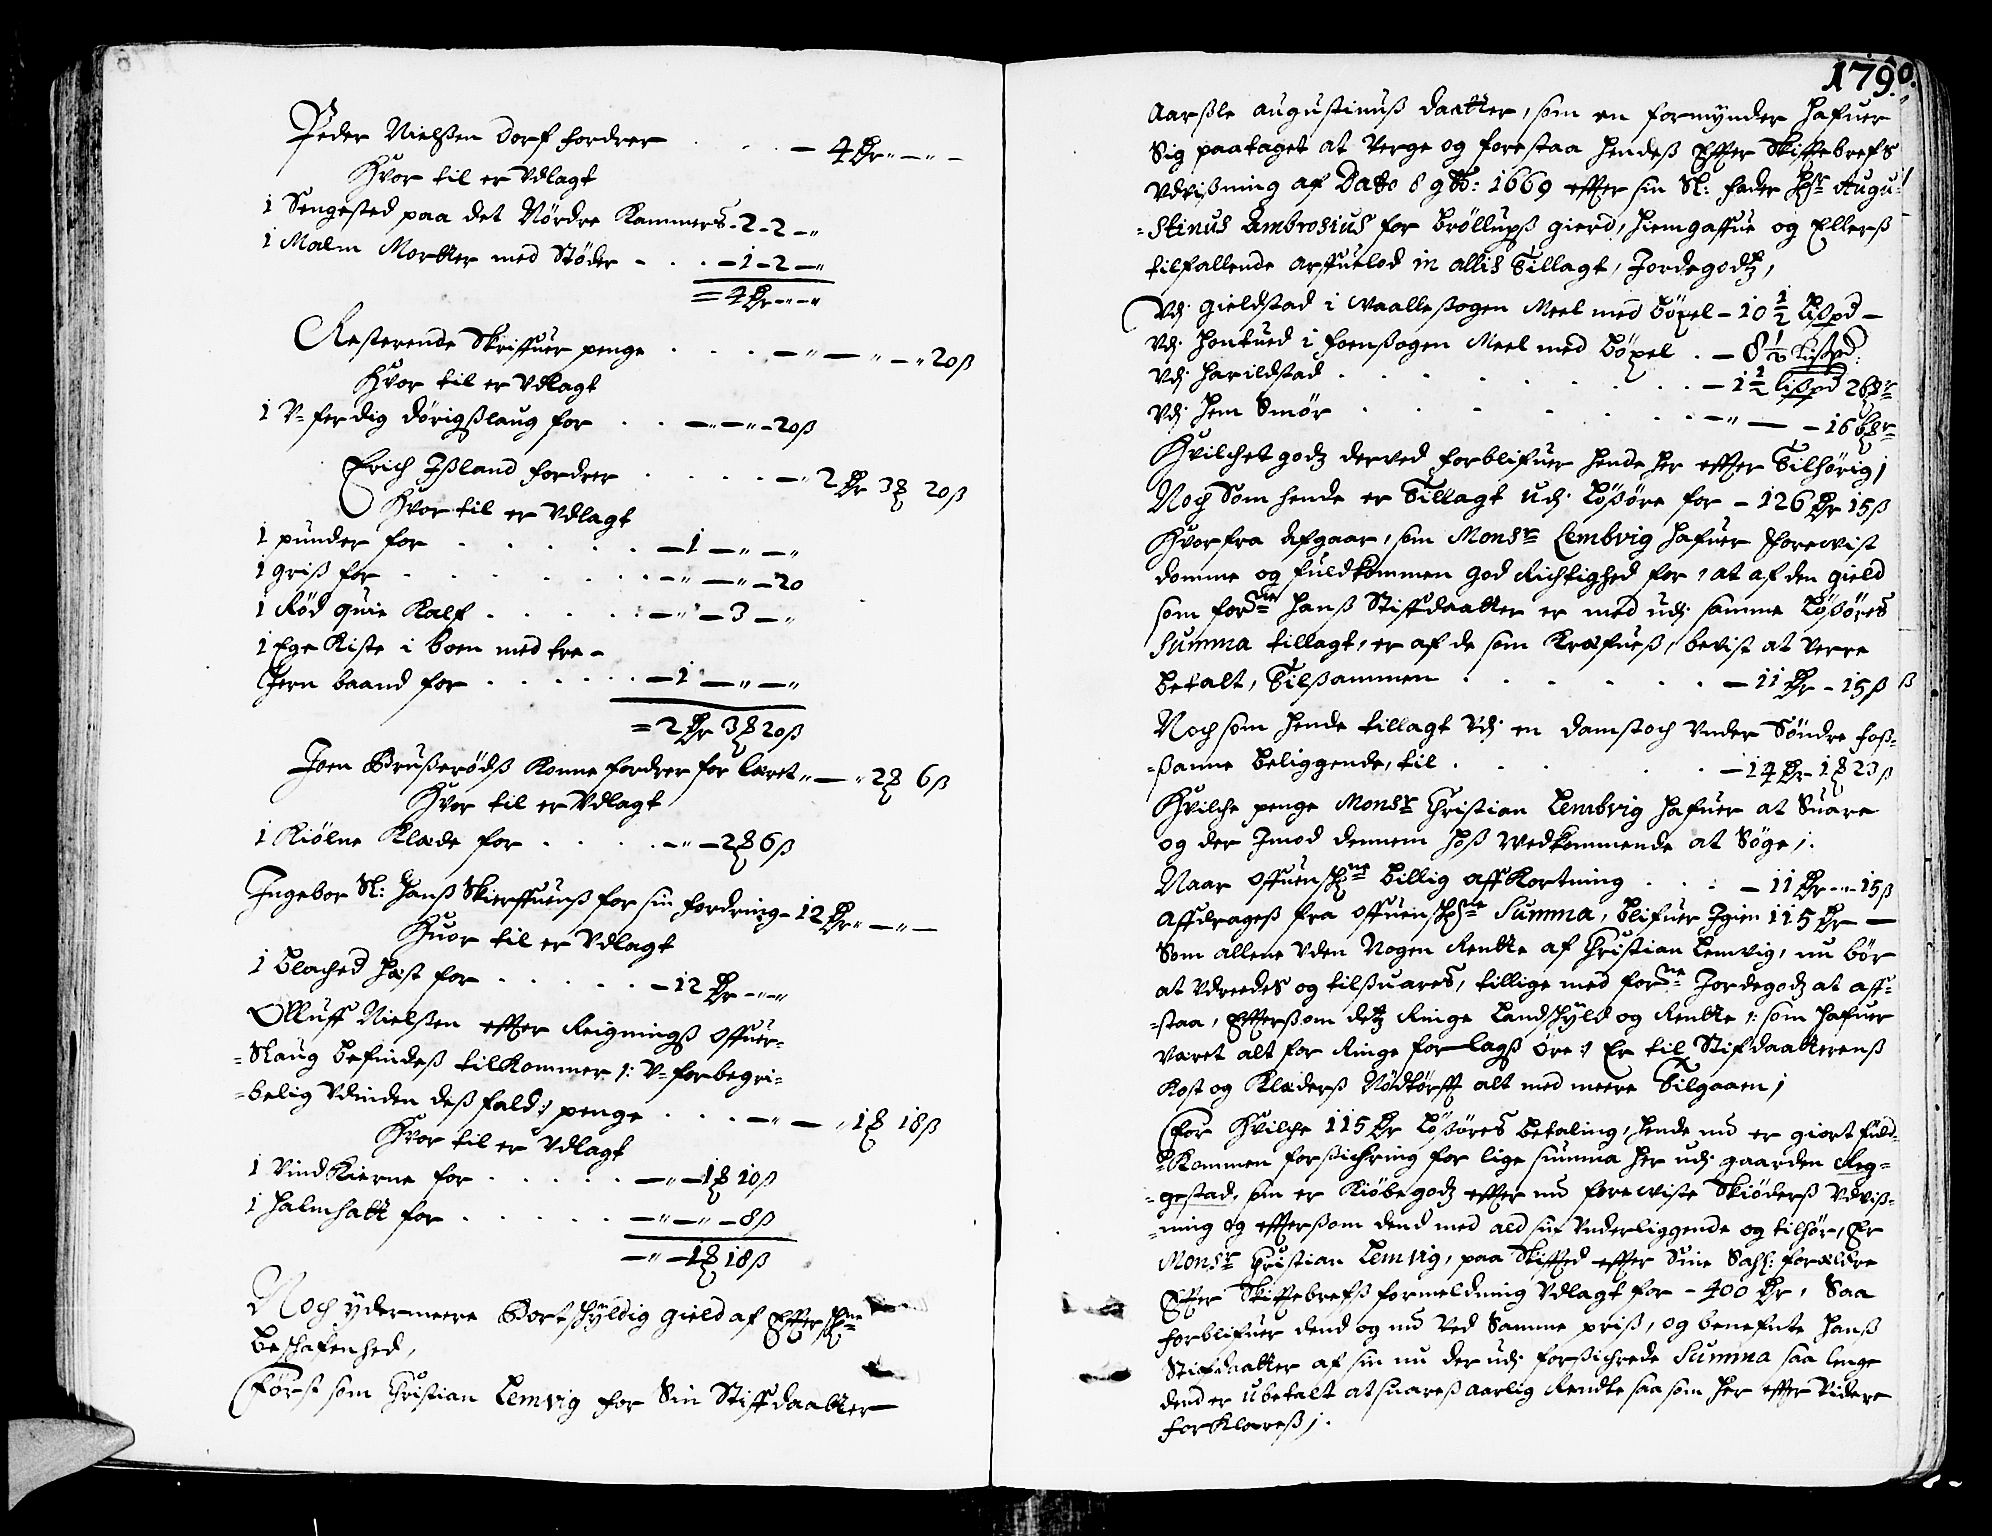 Peder Nielßen Dorf fordrer . . . — 4 Dr — " —
Hvor til er Vdlagt
1 Sengested paa det Nördre Kammers - 2 - 2 — "
1 Malm Mortter med Stöder - . . — 1 - 2 — "
= 4 Dr - - "
Resterende Skriffuer penge . . . — " — " — " 20 ß
Hvor til er Vdlagt
1 V-ferdig dörigßlaug for . . — " — " — 20 ß
Erich Ißland fordrer . . . . — " 2 Dr 3 ȝ 20 ß
Hvor til er Vdlagt
1 pünder for . . . . . — 1 — " — "
1 griß for . . . . . . — " — " — 20
1 Röd quie Kalf . . . . . — " — 3 — "
1 Ege Kiste i boen med tre -
Jern baand for . . . . . . — 1 — " — "
= 2 Dr 3 ȝ 20 ß
Joen Brußerödß Konne fordrer for Læret " — " 2 ȝ 6 ß
Hvor til er Vdlagt
1 Kiölne Klæde for . . . . — " — 2 ȝ 6 ß
Ingebor Sl: Hanß Skierffuenß for sin fordring - 12 Dr " — " —
Huor til er Vdlagt
1 blached Hæst for . . . . . — 12 Dr - " - "
Olluff Nielßen effter Reigningß offuer-
-Slaug befindeß tilkommer /: V-forbegri-
-belig Vdinden deß fald :/ penge . . . — " — " 1 ȝ 18 ß
Hvor til er Vdlagt
1 Vind Kierne for . . . . . — " — 1 ȝ 10 ß
1 halmhatt for . . . . . — " — " — 8 ß
— " — 1 ȝ 18 ß
Noch ydermeere Bortschyldig gield af Effterschne
Beschafenhed,
Först som Christian Lemvig for Sin Stiffdaatter
1790.
Aarßle Augustinuß daatter, som en formynder hafuer
Sig paataget at Verge og forestaa hendeß Effter Skifftebrefs
Vdvißning af Dato 8 9b: 1669 effter sin Sl: fader Hr Augu-
-stinus Ambrosius for bröllupß gierd, hiemgaffue og Ellerß
tilfallende arffuelod in alliß Tillagt, Jordegodtz,
Vdj gieldstad i Waalleßogen Meel med böxel — 10 1/2 Lißpd —
Vdj Hontued i foenßogen Meel med böxel . — 8 1/2 Lißpd:
Vdj Harildstad . . . . . . . — 1 1/2 lißpd 2 ß
Vdj Hem Smör . . . . . . — " — — 16
Hvilchet godtz derved forblifuer hende her effter Tilhörig /
Noch Som hende er Tillagt udj Lößöre for — 126 Dr 15 ß
Hvorfra afgaar, som Monsr Lembvig hafuer forevist
domme og fuldkommen god Richtighed for, at af den gield
som forne hanß Stiffdaatter er med udj samme Lößöres
Summa tillagt, er af de som Kræfueß, bevist at verre
betalt, Tilßammen . . . . . . — 11 Dr — 15 ß
Noch som hende tillagt Vdj en Damstoch Vnder Söndre foß-
-ßanne beliggende, til . . . . . — 14 Dr 1 ȝ 23 ß
Hvilche penge Monsr Christian Lembvig hafuer at Suare
og der Imod dennem hoß Vedkommende at Söge /.
Naar offuenschne billig affkortning . . . — 11 Dr — 15 ß
affdrageß fra offuenschne Summa, blifuer Igien 115 Dr —
Som allene Vden Nogen Rentte af Christian Lemvig, nu bör
at Vdreedes og tilßuares, tillige med forne Jordegodtz at aff-
-staa, Effterßom dette Ringe Landschyld og Rentte /: som hafuer
været alt for Ringe forlagß öre :/ Er til Stifdaatterenß
Kost og Klæderß Nödtörfft alt med meere Tilgaaen /
For Hvilche 115 Dr Lößöres betaling, hende nu er giort fuld-
-kommen forßichring for lige summa her udj gaarden Reg-
-gestad, som er Kiöbegodtz effter nu forewiste Skiöderß Vdviß-
-ning og effterßom dend med ald sin Vnderliggende og tilhör, Er
Monsr Christian Lemvig, paa Skiffted effter Sine Sahl: forældre
Effter Skifftebrefß formeldning Vdlagt for — 400 Dr, Saa
forblifuer dend og nu Ved Samme priß, og benefnte Hanß
Stifdaatter af sin nu der udj forßichrede Summa saa lenge
dend er ubetalt at suareß aarlig Rendte saa som her effter Videre
forklareß /.